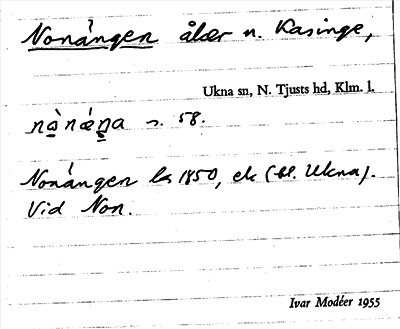 Nonången åker n. Kasinge,
Ukna sn, N. Tjusts hd, Klm. l.
s. 58.
Nonången ls 1850, ek (bl. Ukna).
Vid Non.
Ivar Modéer 1955